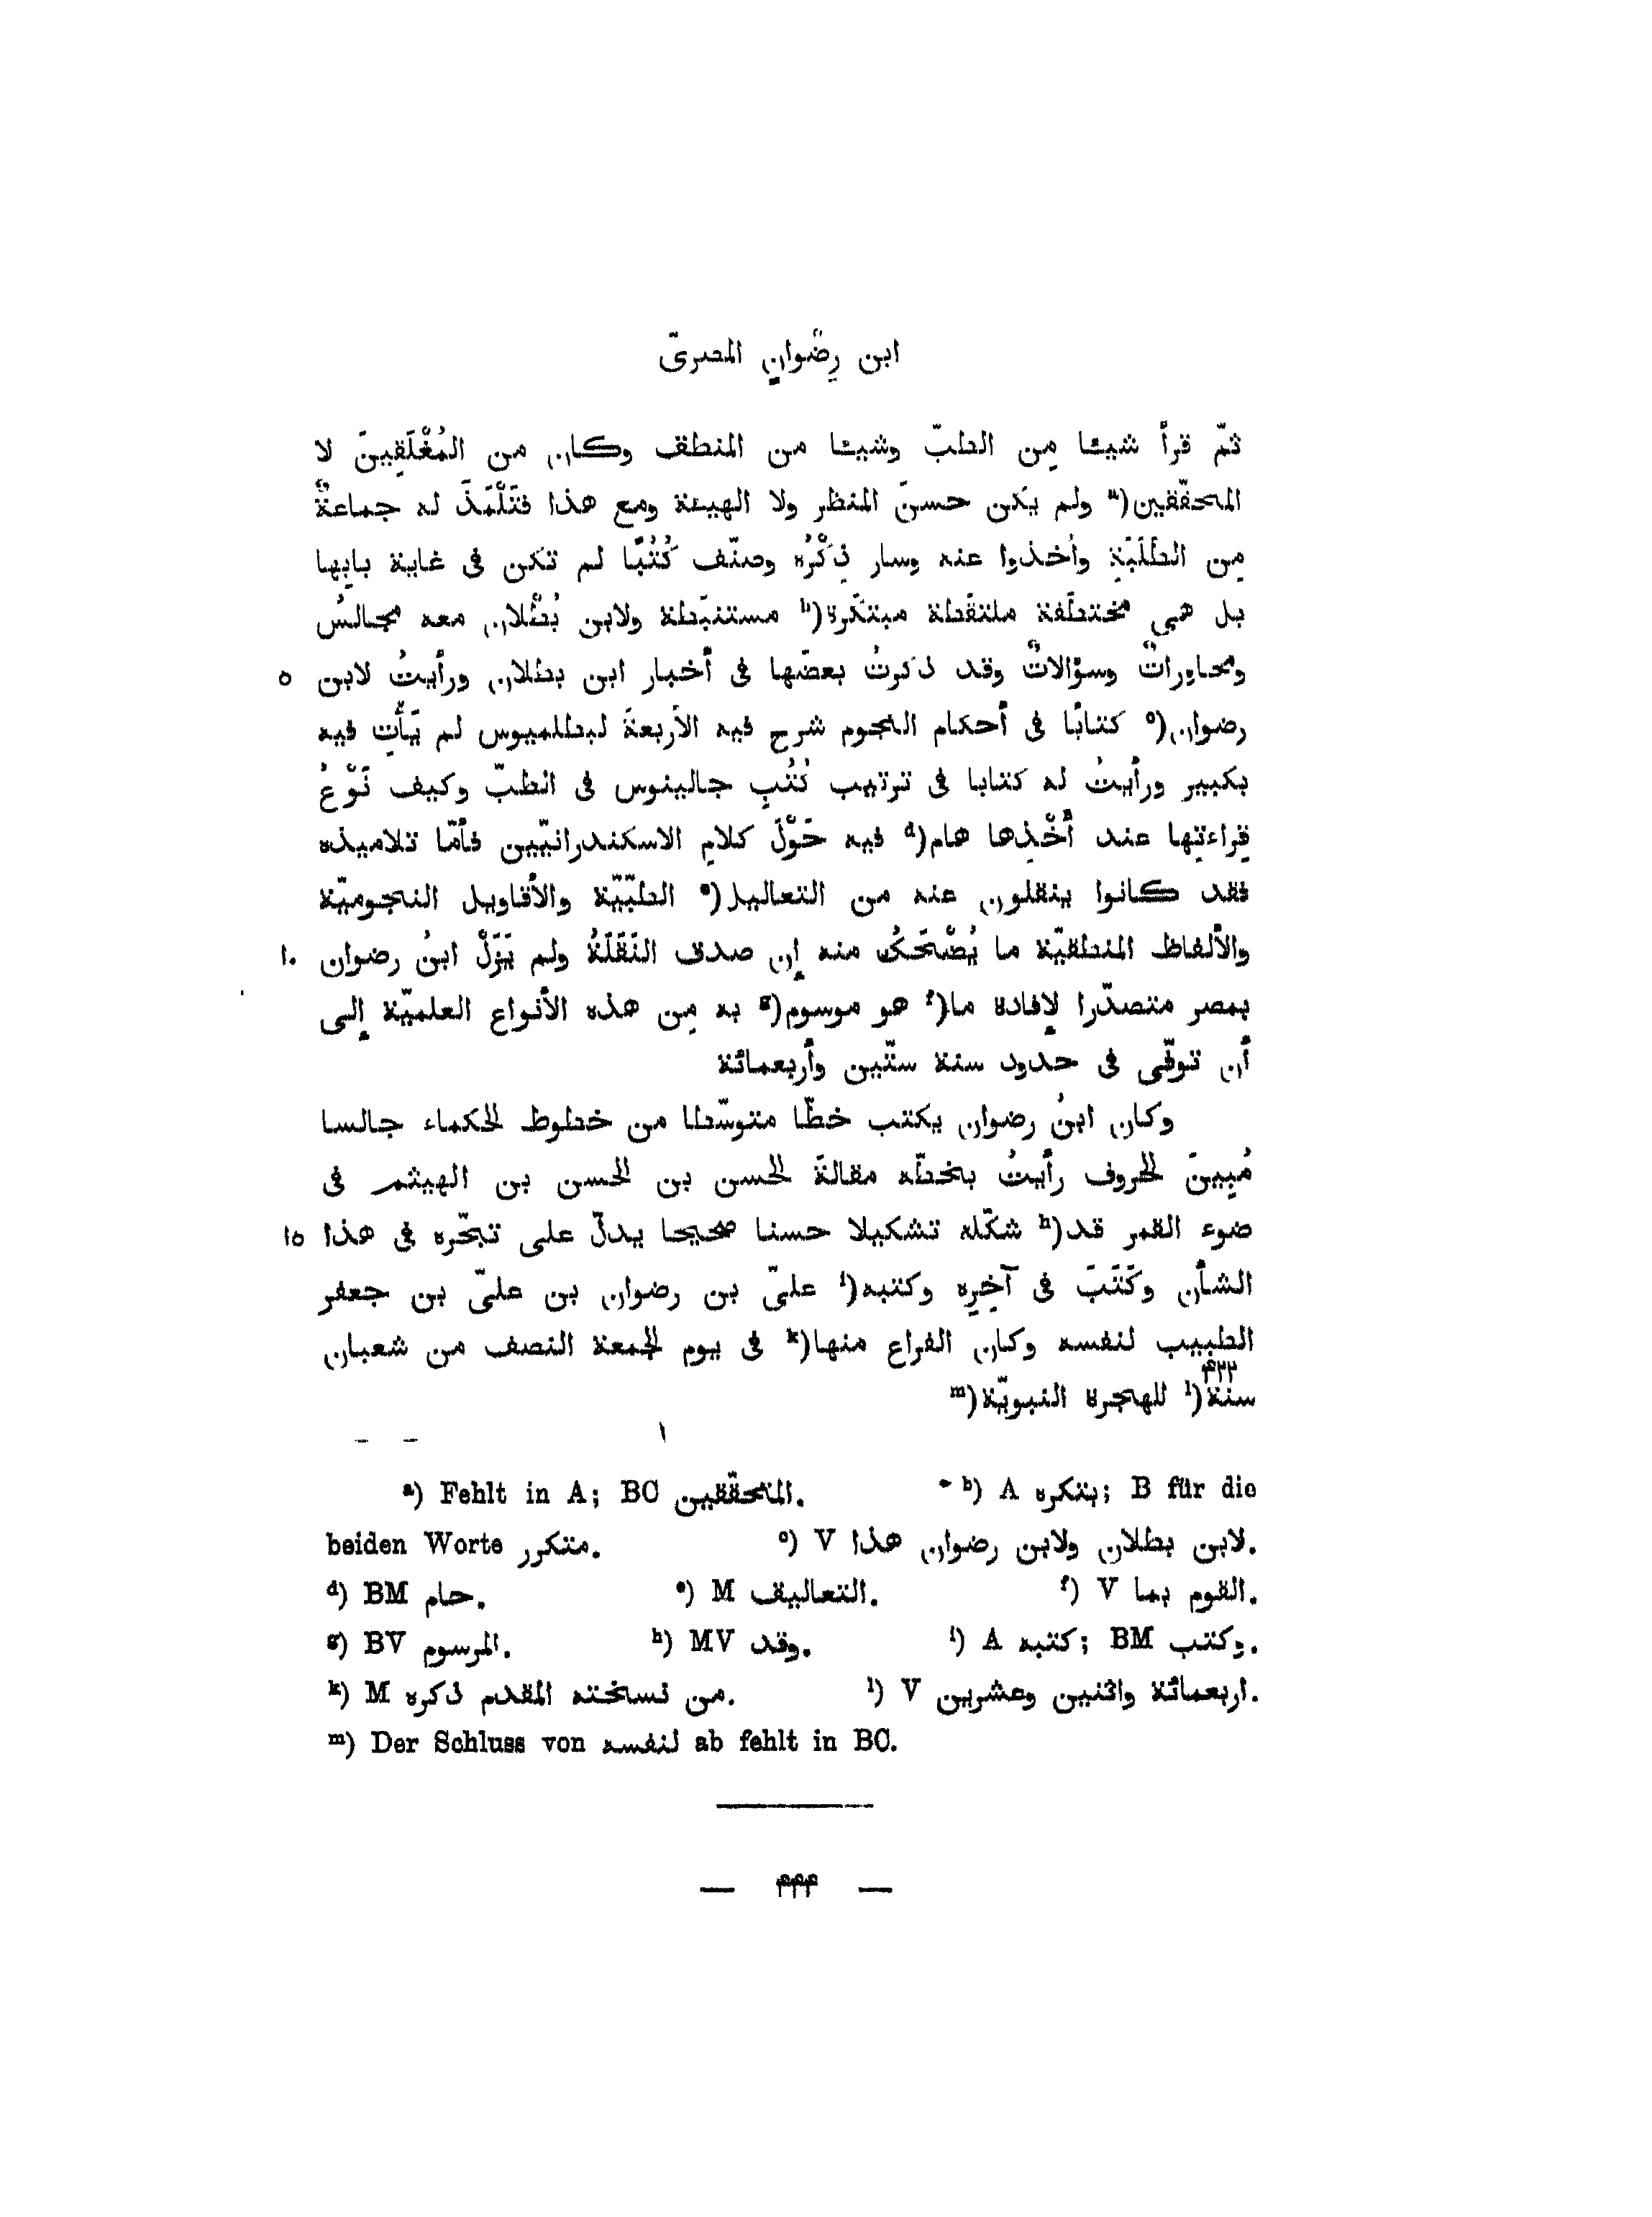 ابن رِضْوانٍ المصرىّ
ثمّ قرأ شيئا مِن الطبّ وشيئا من المنطق وكان من المُغْلَقِينَ لا
المحقّقين(a ولم يكن حسنَ المنظر ولا الهيئة ومع هذا فتَلْمَذَ له جماعةٌ
مِن الطَلَبَةِ وأخذوا عنه وسار ذِكْرُه وصنّف كُتُبًا لم تكن فى غاية بابِها
بل هى مختطَفة ملتقَطة مبتكَرة(b مستنبَطة ولابن بُطْلان معه مجالسُ
ومحاوراتٌ وسؤالاتٌ وقد ذكرتُ بعضَها فى أخبار ابن بطلان ورأيتُ لابن ٥
رضوان(c كتابًا فى أحكام النجوم شرح فيه الأربعةَ لبطلميوس لم يَأْتِ فيه
بكبير ورأيتُ له كتابا فى ترتيب كُتُبِ جالينوس فى الطبّ وكيف نَوْعُ
قِراءتِها عند أَخْذِها هام(d فيه حَوْلَ كلامِ الاسكندرانيّين فأمّا تلاميذه
فقد كانوا ينقلون عنه من التعاليل(e الطبّيّة والأقاويل النجوميّة
والألفاظ المنطقيّة ما يُضْحَكُ منه إن صدق النَقَلَةُ ولم يَزَلْ ابنُ رضوان ١٠
بمصر متصدّرا لإفادة ما(f هو موسوم(g به مِن هذه الأنواع العلميّة إلى
أن توفّى فى حدود سنة ستّين وأربعمائة
وكان ابنُ رضوان يكتب خطّا متوسّطا من خطوط الحكماء جالسا
مُبِينَ الحروف رأيتُ بخطّه مقالةَ الحسن بن الحسن بن الهيثم فى
ضوء القمر قد(h شكّله تشكيلا حسنا صحيحا يدلّ على تبحّره فى هذا ١٥
الشأن وكَتَبَ فى آخِرِه وكتبه(i علىّ بن رضوان بن علىّ بن جعفر
الطبيب لنفسه وكان الفراع منها(k فى يوم الجمعة النصف من شعبان
سنة ۴۲۲(l للهجرة النبويّة(m
a) Fehlt in A; BC المتحقّقين. b) A بتكره; B für die
beiden Worte متكرر. c) V لابن بطلان ولابن رضوان هذا.
d) BM حام. e) M التعاليف. f) V القوم بما.
g) BV المرسوم. h) MV وقد. i) A كتبه; BM وكتب.
k) M من نسخته المقدم ذكره. l) V اربعمائة واثنين وعشرين.
m) Der Schluss von لنفسه ab fehlt in BC.
— ۴۴۴ —